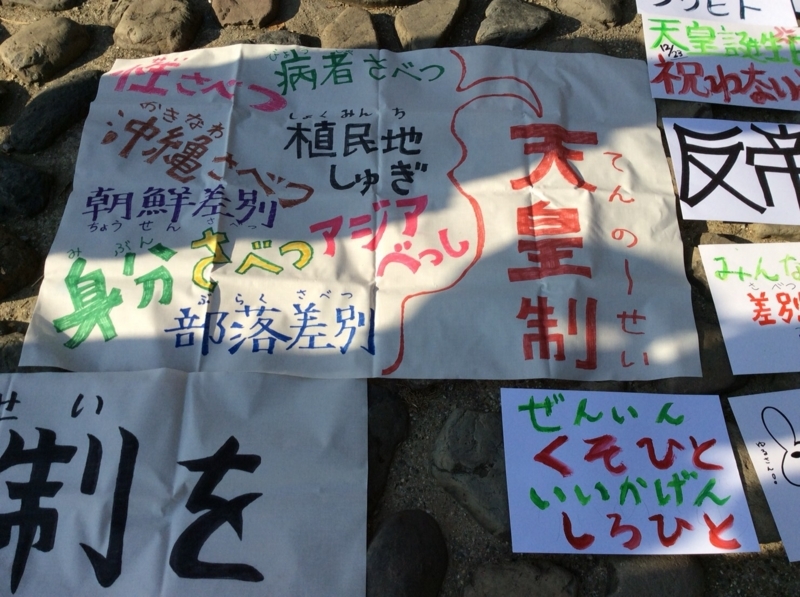 性さべつ
びょうしゃ
病者さべつ
おきなわ
沖縄さべつ
しょくみんち
植民地
しゅぎ
朝鮮差別
ちょうせんさべつ
アジア
べっし
みぶん
身分さべつ
ぶらくさべつ
部落差別
天皇制
てんのーせい
せい
制を
天皇誕生日
12/23
祝わない
反帝
みんな
さべつ
差別
ぜんいん
くそひと
いいかげん
しろひと